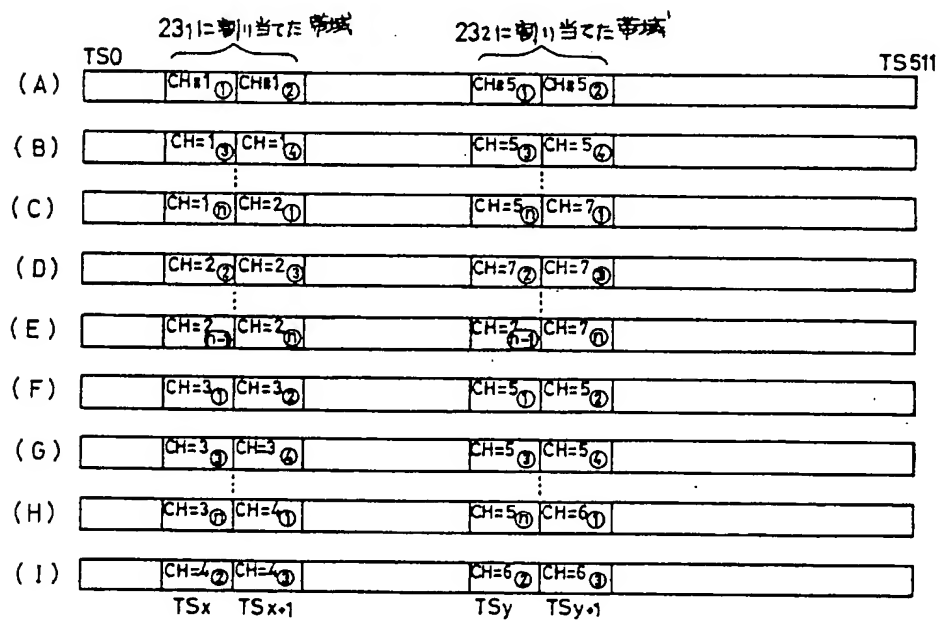 23₁に割り当てた帯域 23₂に割り当てた帯域
TS0 TS511
(A) CH=1① CH=1② CH=5① CH=5②
(B) CH=1③ CH=1④ CH=5③ CH=5④
(C) CH=1ⓝ CH=2① CH=5ⓝ CH=7①
(D) CH=2② CH=2③ CH=7② CH=7③
(E) CH=2(n-1) CH=2ⓝ CH=7(n-1) CH=7ⓝ
(F) CH=3① CH=3② CH=5① CH=5②
(G) CH=3③ CH=3④ CH=5③ CH=5④
(H) CH=3ⓝ CH=4① CH=5ⓝ CH=6①
(I) CH=4② CH=4③ CH=6② CH=6③
TSx TSx+1 TSy TSy+1